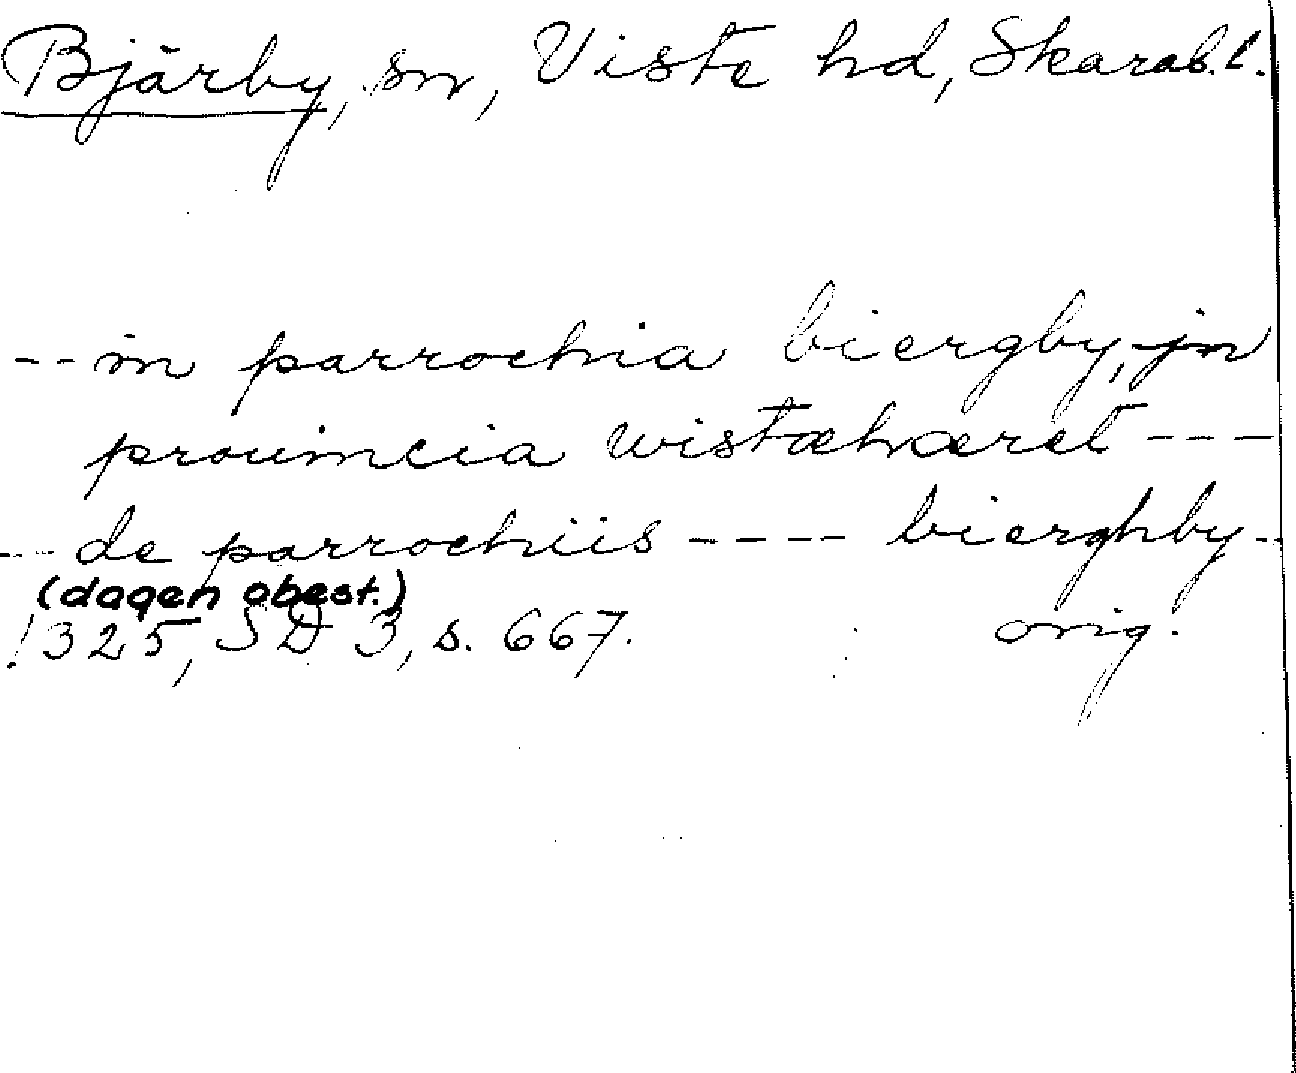 Bjärby, sn, Viste hd, Skarab.l.
-- in parrochia biergby, jn
prouincia wistæhæret ---
-- de parrochiis ---- bierghby --
(dagen obest.)
1325, SD 3, s. 667. orig.